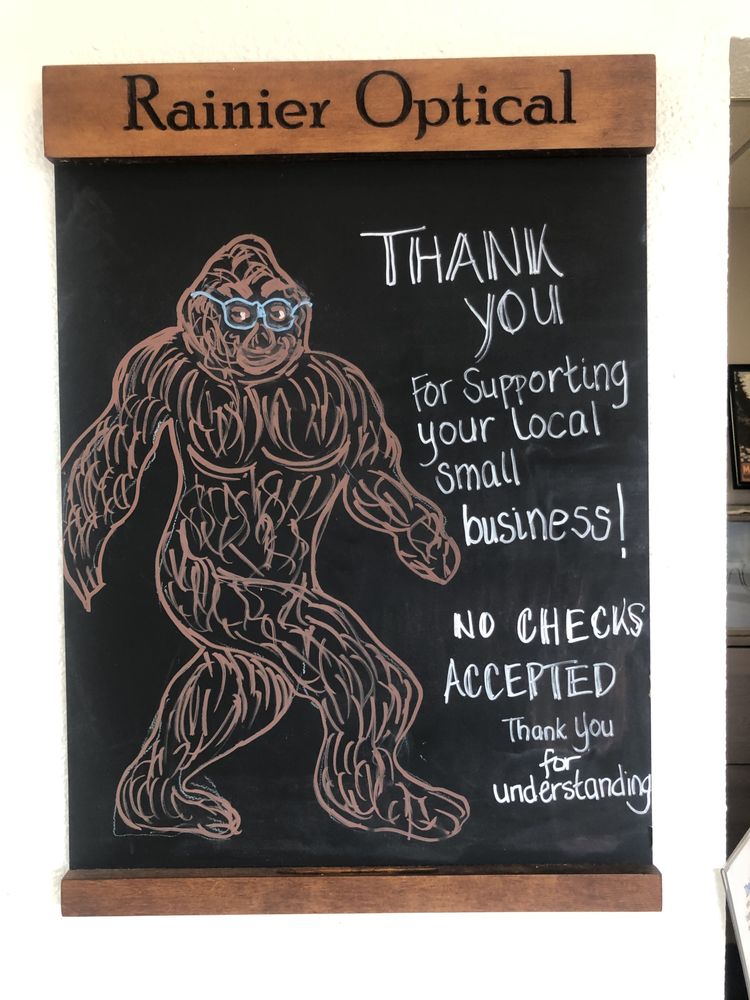 Rainier Optical
THANK
YOU
For Supporting
your local
small
business!
NO CHECKS
ACCEPTED
Thank You
for
understanding